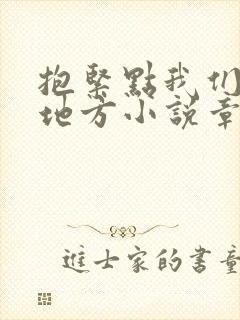 抱緊點我们
地方小説章
進士家的書童